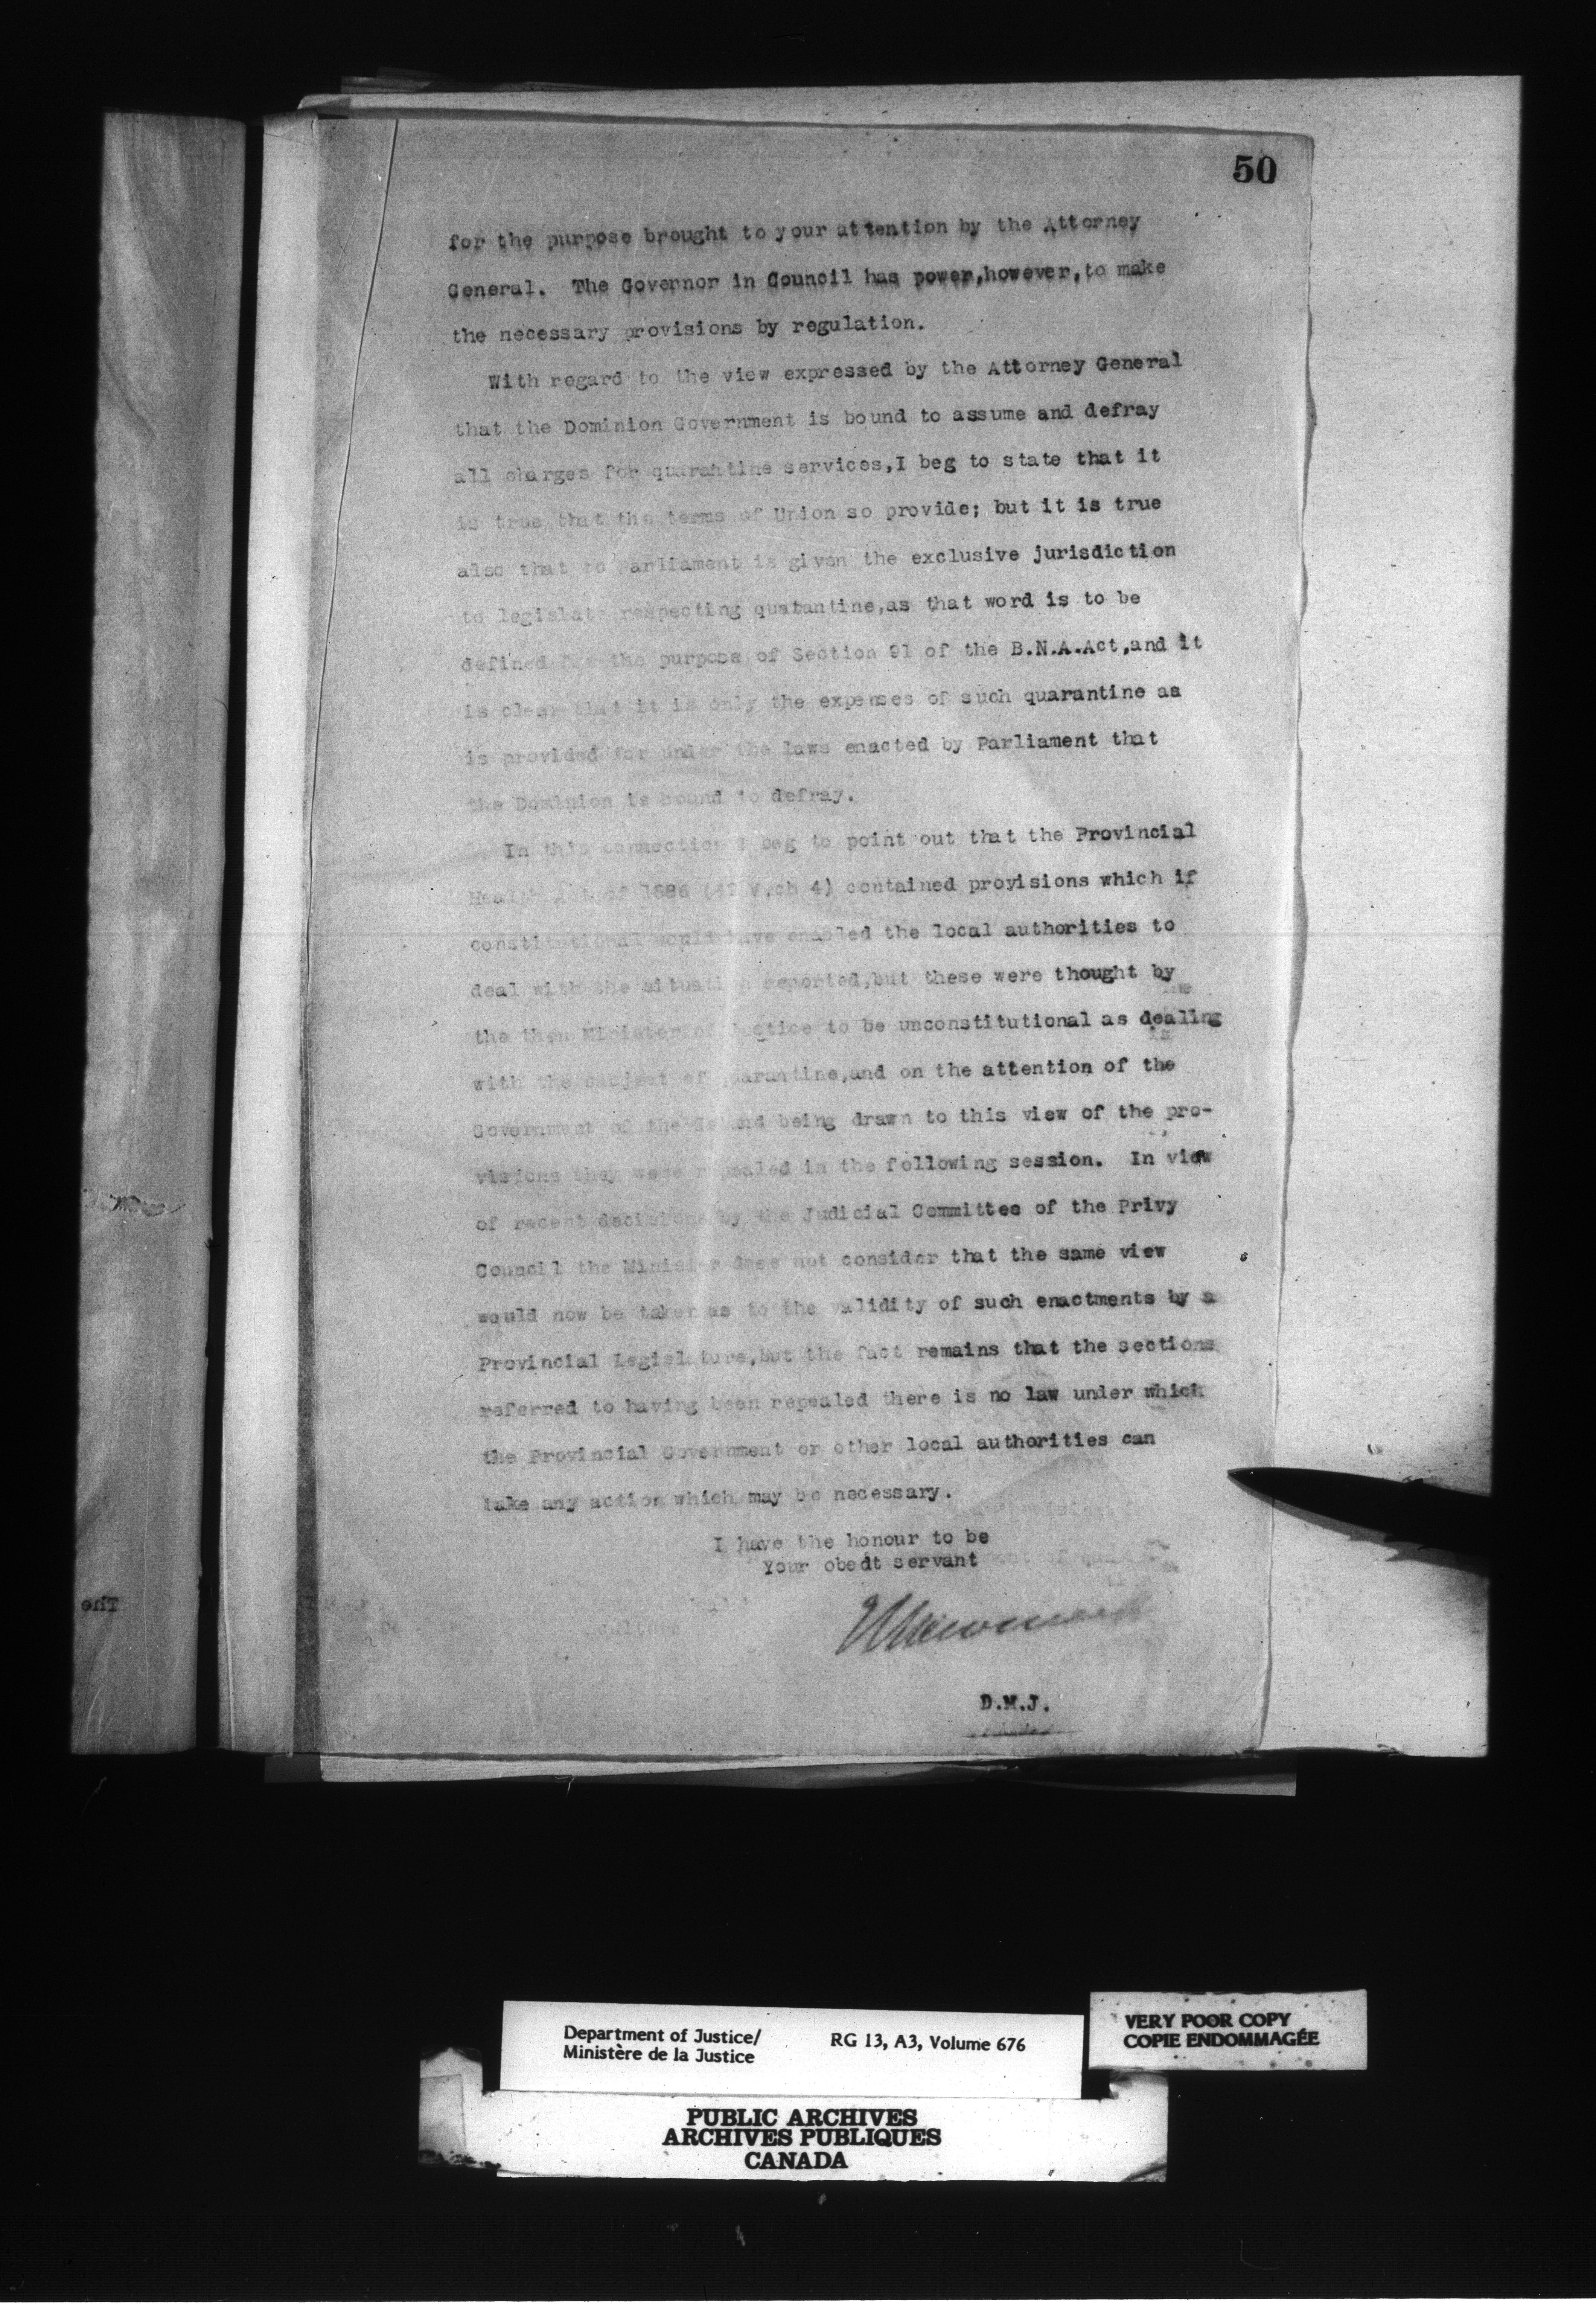 50
for the purpose brought to your attention by the Attorney
General. The Governor in Council has power,however,to make
the necessary provisions by regulation.
With regard to the view expressed by the Attorney General
that the Dominion Government is bound to assume and defray
all charges for quarantine services,I beg to state that it
is true that the terms of Union so provide; but it is true
also that to Parliament is given the exclusive jurisdiction
to legislate respecting quarantine,as that word is to be
defined for the purpose of Section 91 of the B.N.A.Act,and it
is clear that it is only the expenses of such quarantine as
is provided for under the laws enacted by Parliament that
the Dominion is bound to defray.
In this connection I beg to point out that the Provincial
Health Act of 1886 (49 V.ch 4) contained provisions which if
constitutional would have enabled the local authorities to
deal with the situation reported,but these were thought by
the then Minister of Justice to be unconstitutional as dealing
with the subject of quarantine,and on the attention of the
Government of the Island being drawn to this view of the pro-
visions they were repealed in the following session. In view
of recent decisions by the Judicial Committee of the Privy
Council the Minister does not consider that the same view
would now be taken as to the validity of such enactments by a
Provincial Legislature,but the fact remains that the sections
referred to having been repealed there is no law under which
the Provincial Government or other local authorities can
take any action which may be necessary.
I have the honour to be
Your obedt servant
D.M.J.
The
Department of Justice/ RG 13, A3, Volume 676
Ministère de la Justice
VERY POOR COPY
COPIE ENDOMMAGÉE
PUBLIC ARCHIVES
ARCHIVES PUBLIQUES
CANADA